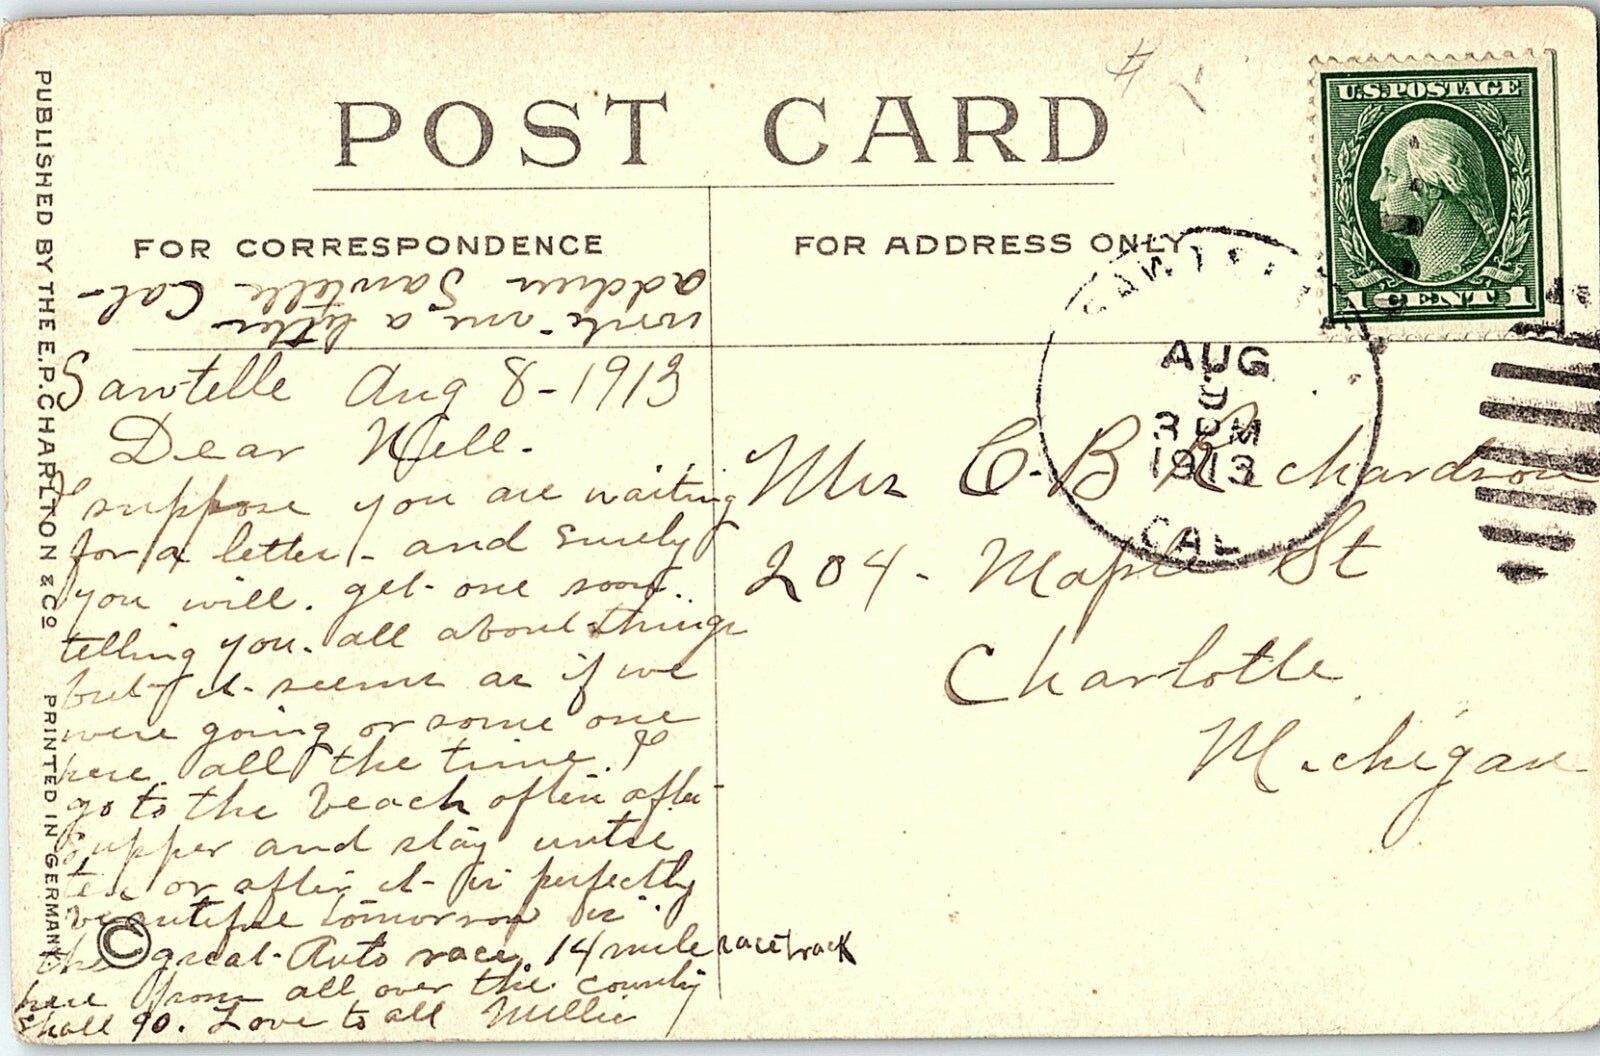 POST CARD
FOR CORRESPONDENCE
FOR ADDRESS ONLY
U.S. POSTAGE
1 CENT 1
AUG
3 PM
1913
CAL
PUBLISHED BY THE E.P. CHARLTON & CO. PRINTED IN GERMANY
write me a letter
address Sawtelle Cal-
Sawtelle Aug 8-1913
Dear Nell-
I suppose you are waiting
for a letter - and surely
you will. get one soon.
telling you. all about things
but it seems as if we
were going or some one
here all the time. I
go to the beach often after
supper and stay until
ten or after it is perfectly
beautiful tomorrow is
the great Auto race 14 mile race track
here from all over the country
shall go. Love to all Millie
Mrs C. B Richardson
204 - Maple St
Charlotte
Michigan
©